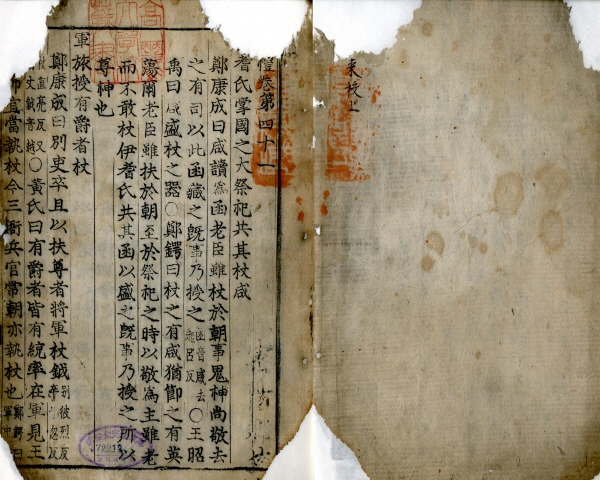 來校上
卷第四十一
耆氏掌國之大祭祀共其杖咸
鄭康成曰咸讀爲函老臣雖杖於朝事鬼神尚敬去
之有司以此函藏之旣事乃授之 函音咸去 呂反 〇王昭
禹曰咸盛杖之器〇鄭鍔曰杖之有咸猶節之有英
蕩爾老臣雖扶於朝至於祭祀之時以敬爲主雖老
而不敢杖伊耆氏共其函以盛之旣事乃授之所以
尊神也
軍旅授有爵者杖
鄭康成曰別吏卒且以扶尊者將軍杖鉞 別彼烈反
音越 〇黃氏曰有爵者皆有統率在軍見王
宜當執杖今三衙兵官常朝亦執杖也 鄭鍔曰
72213